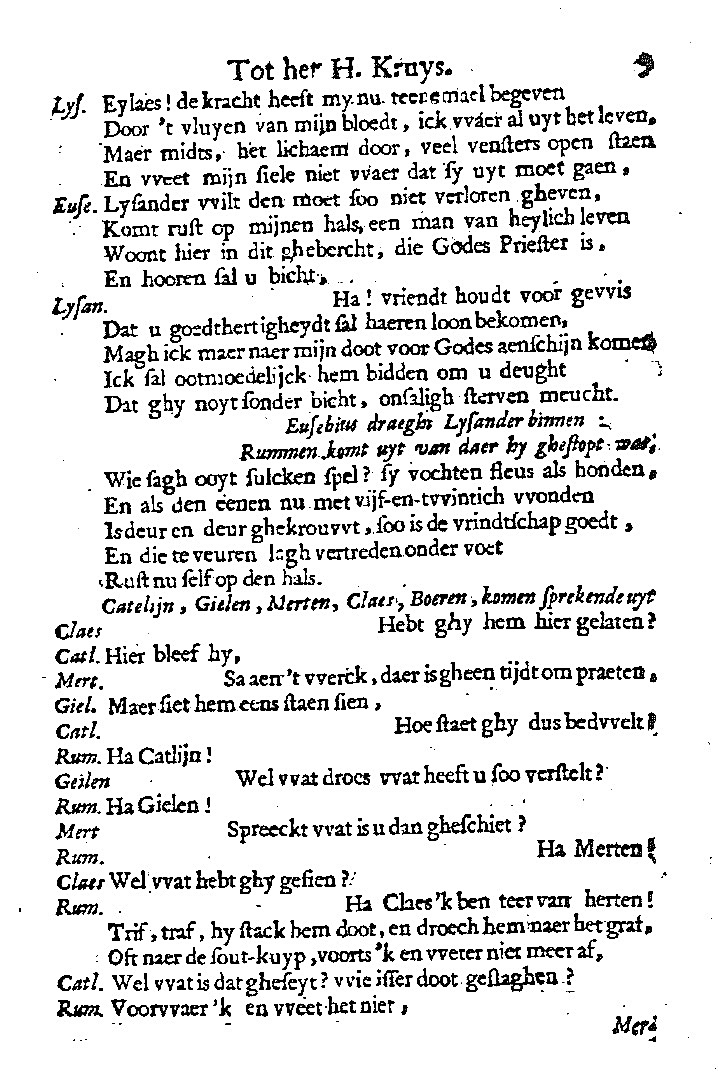 Tot her H. Kruys. 9
Lyſ. Eylaes! de kracht heeft my nu teenemael begeven
Door 't vluyen van mijn bloedt, ick vvaer al uyt het leven.
Maer midts, het lichaem door, veel venſters open ſtaen
En vveet mijn ſiele niet vvaer dat ſy uyt moet gaen,
Euſe. Lyſander vvilt den moet ſoo niet verloren gheven,
Komt ruſt op mijnen hals, een man van heylich leven
Woont hier in dit ghebercht, die Godes Prieſter is.
En hooren ſal u bicht.
Lyſan. Ha! vriendt houdt voor gevvis
Dat u goedthertigheydt ſal haeren loon bekomen,
Magh ick maer naer mijn doot voor Godes aenſchijn komen
Ick ſal ootmoedelijck hem bidden om u deught
Dat ghy noyt ſonder bicht, onſaligh ſterven meucht.
Euſebius draeght Lyſander binnen
Rummen komt uyt van daer hy gheſtopt was.
Wie ſagh ooyt ſulcken ſpel? ſy vochten fleus als honden,
En als den eenen nu met vijf-en-tvvintich vvonden
Is deur en deur ghekrouvvt, ſoo is de vrindtſchap goedt,
En die te veuren lagh vertreden onder voet
Ruſt nu ſelf op den hals.
Catelijn, Gielen, Merten, Claes, Boeren, komen ſprekende uyt
Claes Hebt ghy hem hier gelaten?
Catl. Hier bleef hy,
Mert. Sa aen 't vverck, daer is gheen tijdt om praeten,
Giel. Maer ſiet hem eens ſtaen ſien,
Catl. Hoe ſtaet ghy dus bedvvelt!
Rum. Ha Catlijn!
Geilen Wel vvat droes vvat heeft u ſoo verſtelt?
Rum. Ha Gielen!
Mert Spreeckt vvat is u dan gheſchiet?
Rum. Ha Merten!
Claes Wel vvat hebt ghy geſien?
Rum. Ha Claes 'k ben teer van herten!
Trif, traf, hy ſtack hem doot, en droech hem naer het graf,
Oft naer de ſout-kuyp, voorts 'k en vveter niet meer af,
Catl. Wel vvat is dat gheſeyt? vvie iſſer doot geſlaghen?
Rum. Voorvvaer 'k en vveet het niet,
Mert